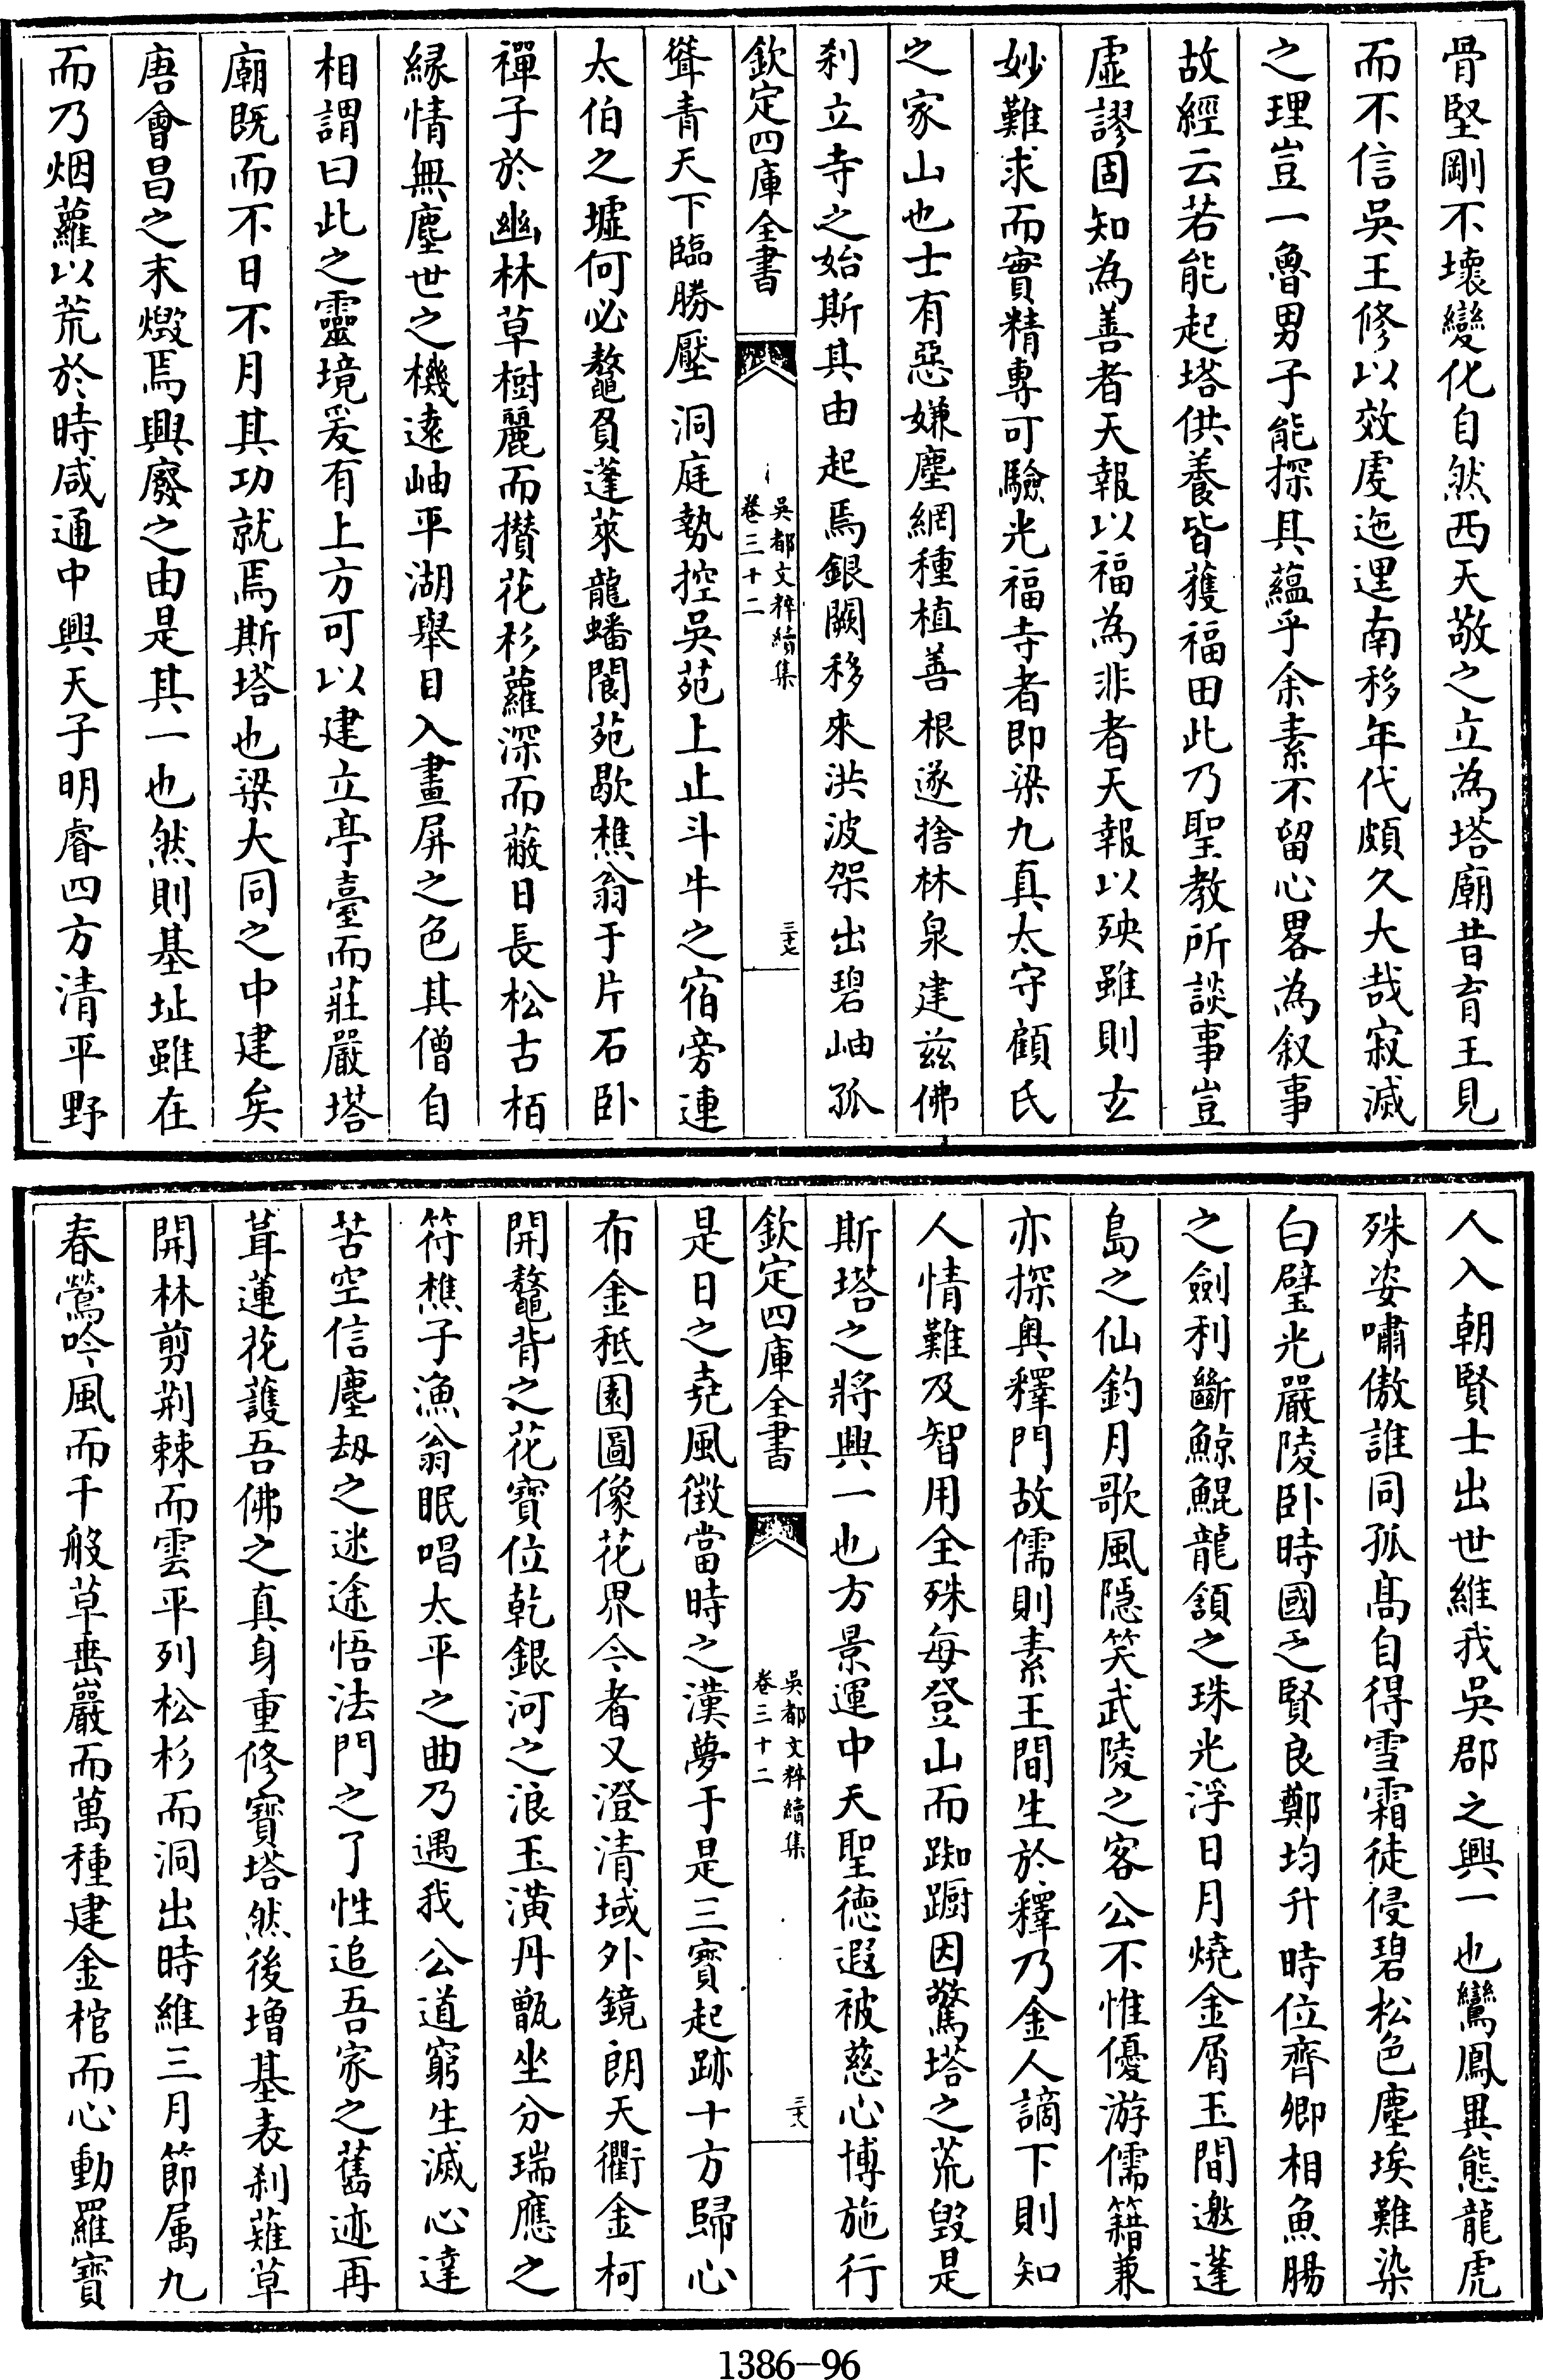 骨堅剛不壞變化自然西天敬之立為塔廟昔育王見
而不信吳王修以效虔迤邐南移年代頗久大哉寂滅
之理豈一魯男子能探其蘊乎余素不留心畧為叙事
故經云若能起塔供養皆獲福田此乃聖教所談事豈
虛謬固知為善者天報以福為非者天報以殃雖則玄
妙難求而實精專可驗光福寺者即梁九真太守顧氏
之家山也士有惡嫌塵網種植善根遂捨林泉建兹佛
刹立寺之始斯其由起焉銀闕移來洪波架出碧岫孤
欽定四庫全書
吳都文粹續集
卷三十二
三十七
聳青天下臨勝壓洞庭勢控吳苑上止斗牛之宿旁連
太伯之墟何必鼇負蓬萊龍蟠閬苑歇樵翁于片石卧
禪子於幽林草樹麗而攢花杉蘿深而蔽日長松古栢
緣情無塵世之機遠岫平湖舉目入畫屏之色其僧自
相謂曰此之靈境爰有上方可以建立亭臺而莊嚴塔
廟既而不日不月其功就焉斯塔也梁大同之中建矣
唐會昌之末燬焉興廢之由是其一也然則基址雖在
而乃烟蘿以荒於時咸通中興天子明睿四方清平野
人入朝賢士出世維我吳郡之興一也鸞鳳異態龍虎
殊姿嘯傲誰同孤高自得雪霜徒侵碧松色塵埃難染
白璧光嚴陵卧時國乏賢良鄭均升時位齊卿相魚腸
之劍利斷鯨鯤龍頷之珠光浮日月燒金屑玉間邀蓬
島之仙釣月歌風隱笑武陵之客公不惟優游儒籍兼
亦探奧釋門故儒則素王間生於釋乃金人謫下則知
人情難及智用全殊每登山而踟蹰因驚塔之荒毀是
斯塔之將興一也方景運中天聖德遐被慈心博施行
欽定四庫全書
吳都文粹續集
卷三十二
三十八
是日之堯風徵當時之漢夢于是三寶起跡十方歸心
布金秪園圖像花界今者又澄清域外鏡朗天衢金柯
開鼇背之花寶位乾銀河之浪玉潢丹甑坐分瑞應之
符樵子漁翁眠唱太平之曲乃遇我公道窮生滅心達
苦空信塵劫之迷途悟法門之了性追吾家之舊迹再
葺蓮花護吾佛之真身重修寶塔然後增基表刹薙草
開林剪荆棘而雲平列松杉而洞出時維三月節属九
春鶯吟風而千般草垂巖而萬種建金棺而心動羅寶
1386-96